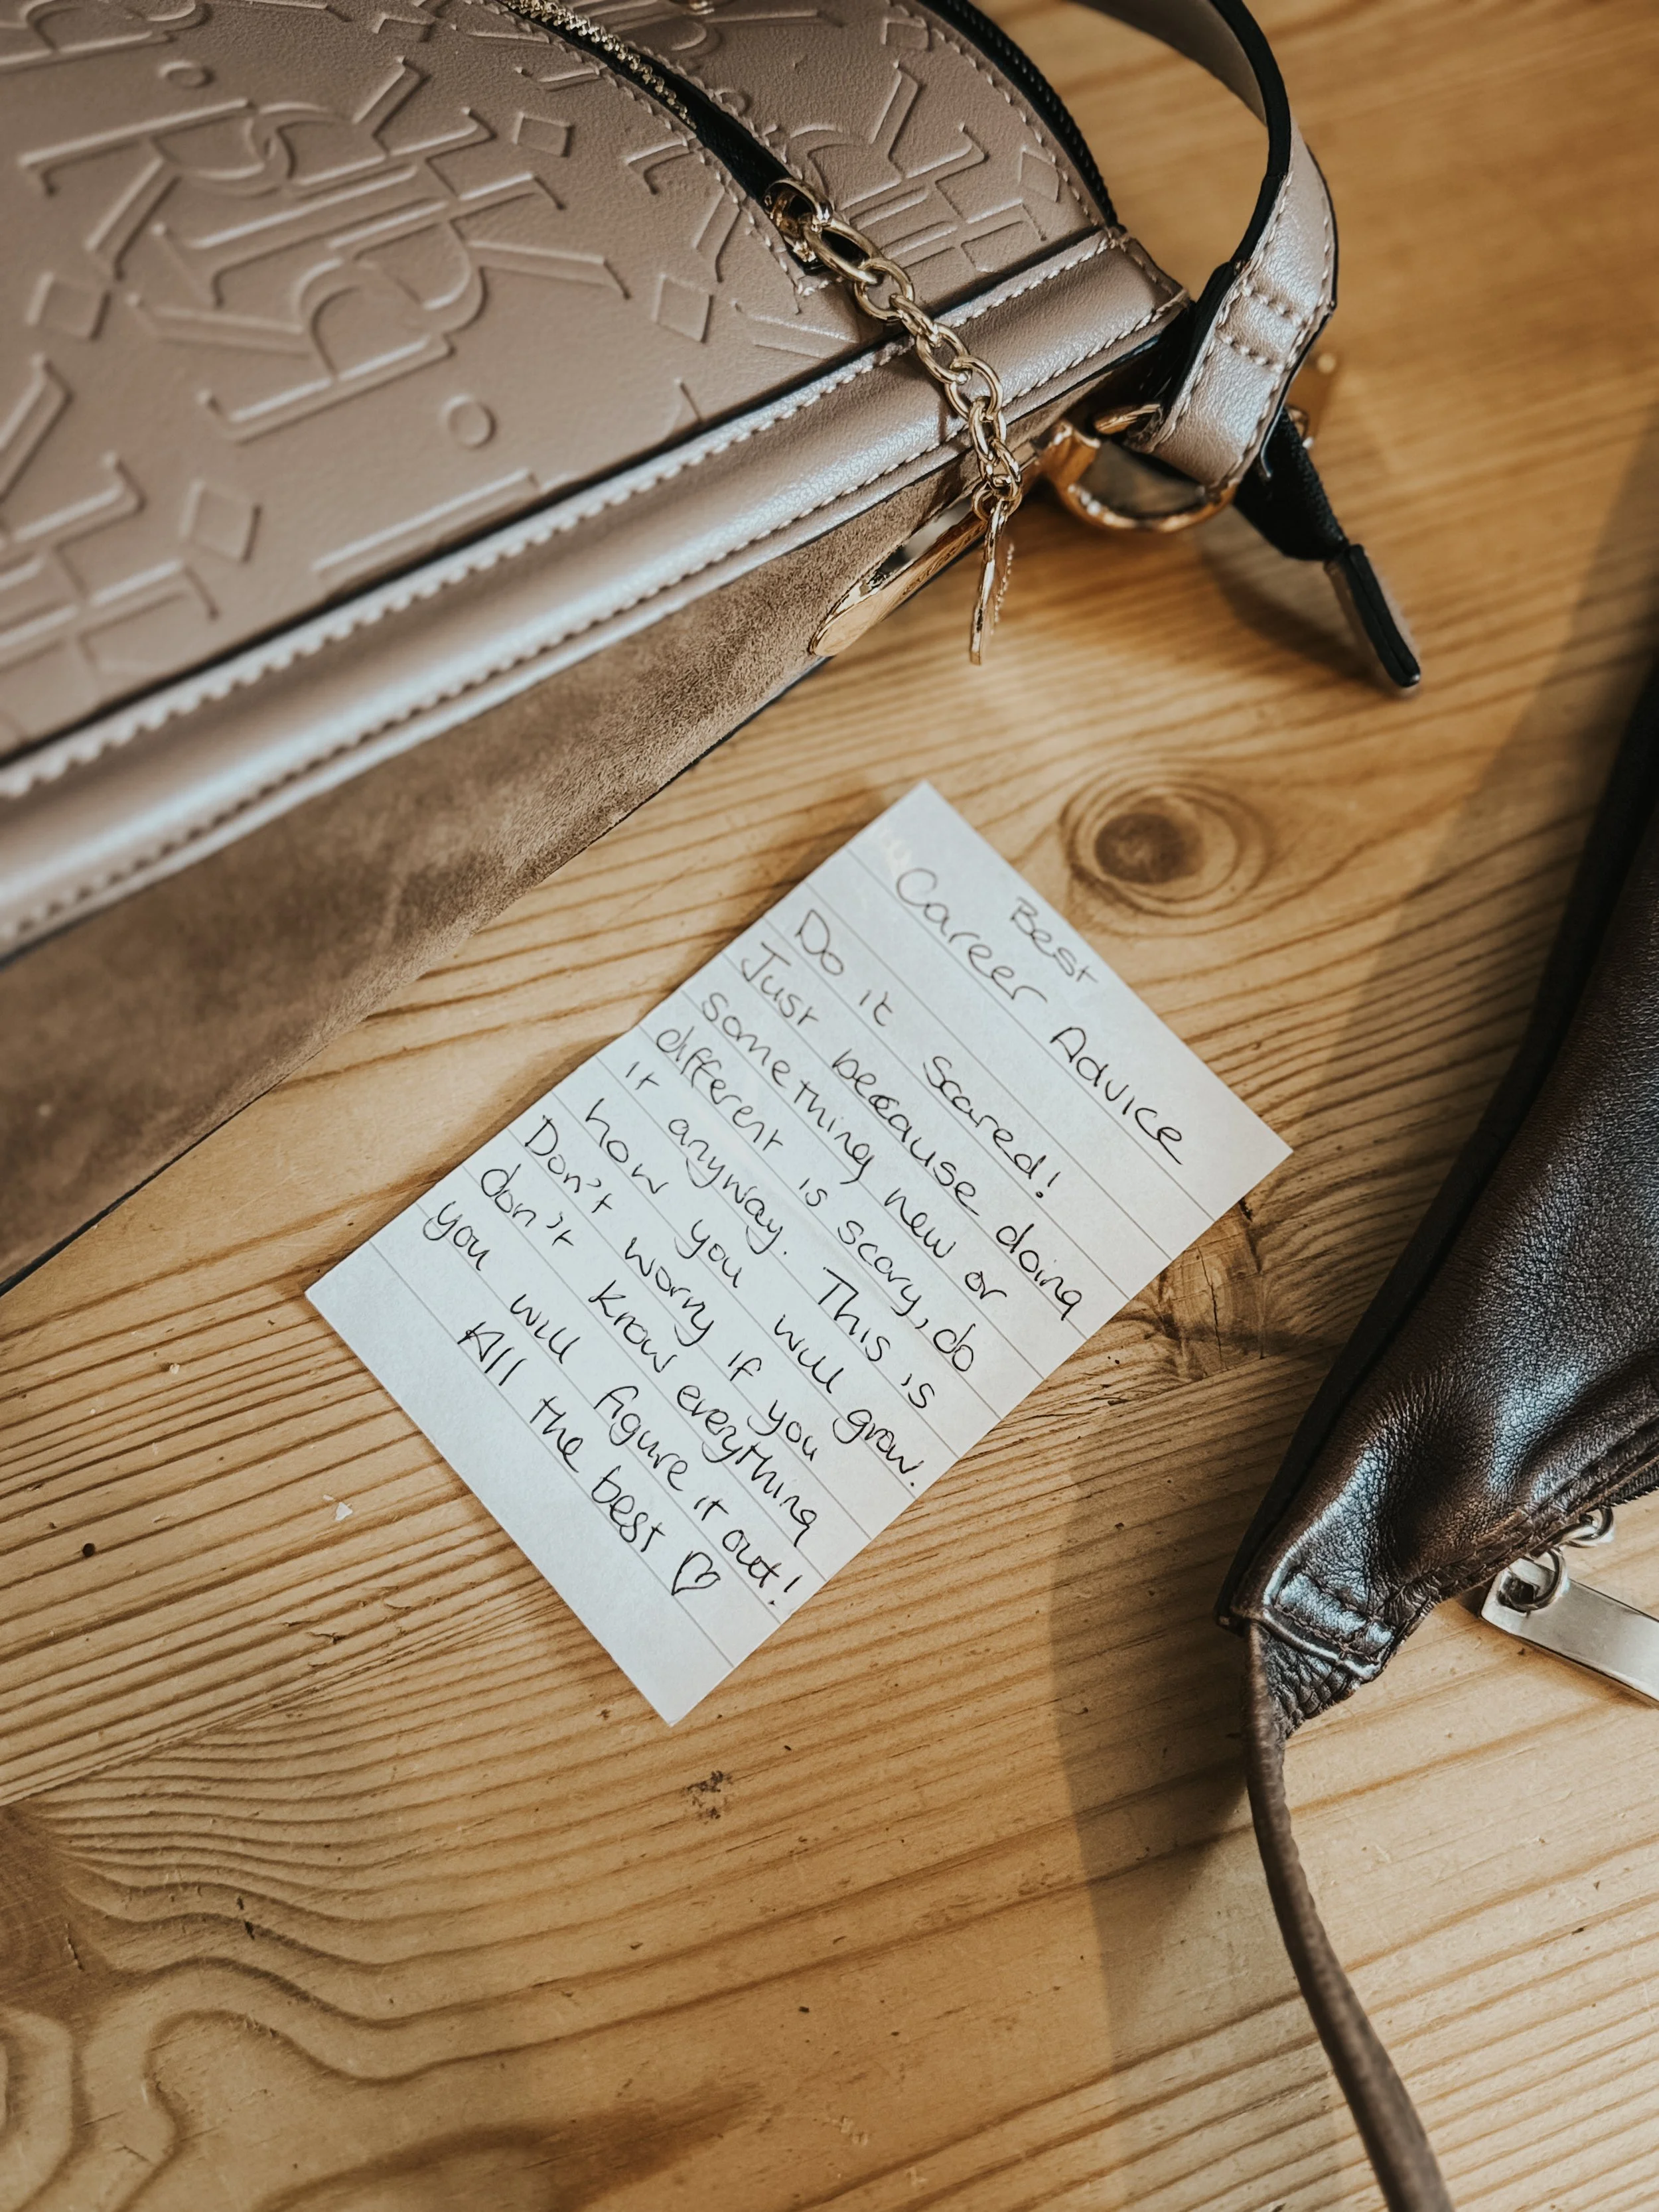 Best
Career Advice
Do it scared!
Just because doing
something new or
different is scary, do
it anyway. This is
how you will grow.
Don't worry if you
don't know everything
you will figure it out!
All the best ♡